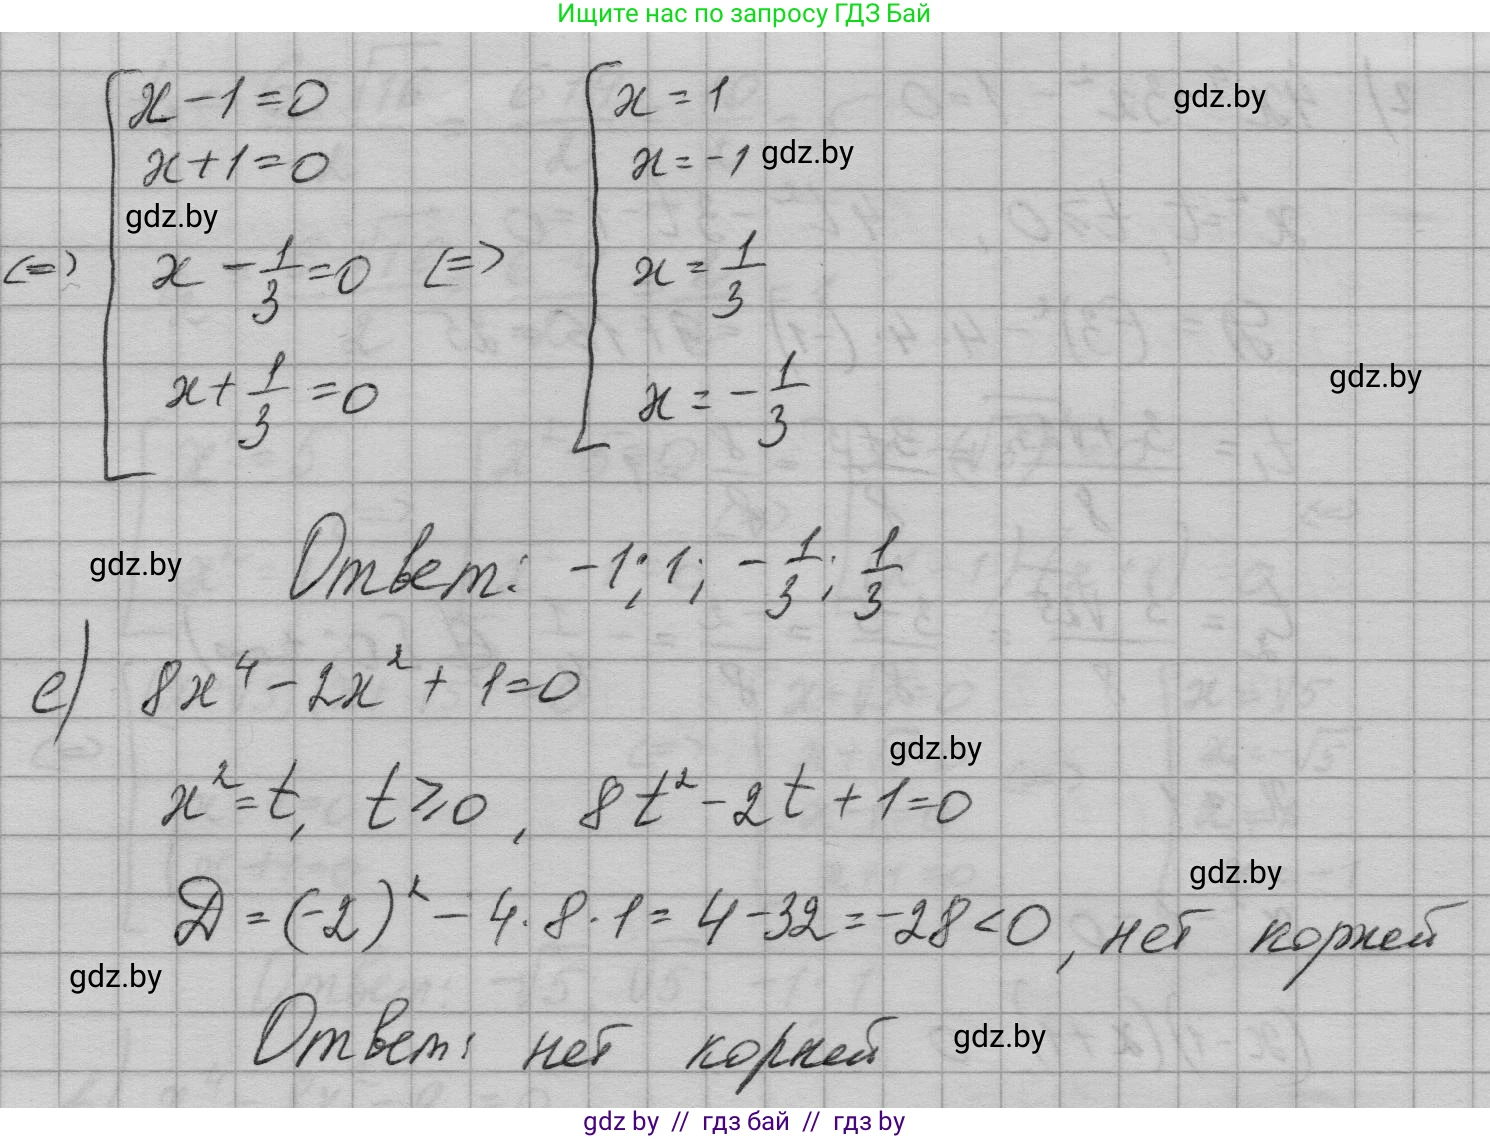 Ищите нас по запросу ГДЗ Бай
x - 1 = 0
x = 1
gdz.by
x + 1 = 0
x = -1
gdz.by
gdz.by
(=)
x - 1/3 = 0
(=)
x = 1/3
x + 1/3 = 0
x = - 1/3
gdz.by
gdz.by
Ответ: -1; 1; - 1/3; 1/3
е) 8x⁴ - 2x² + 1 = 0
gdz.by
x² = t, t ⩾ 0, 8t² - 2t + 1 = 0
gdz.by
D = (-2)² - 4 · 8 · 1 = 4 - 32 = -28 < 0, нет корней
gdz.by
Ответ: нет корней
gdz.by
gdz by // гдз бай // гдз by